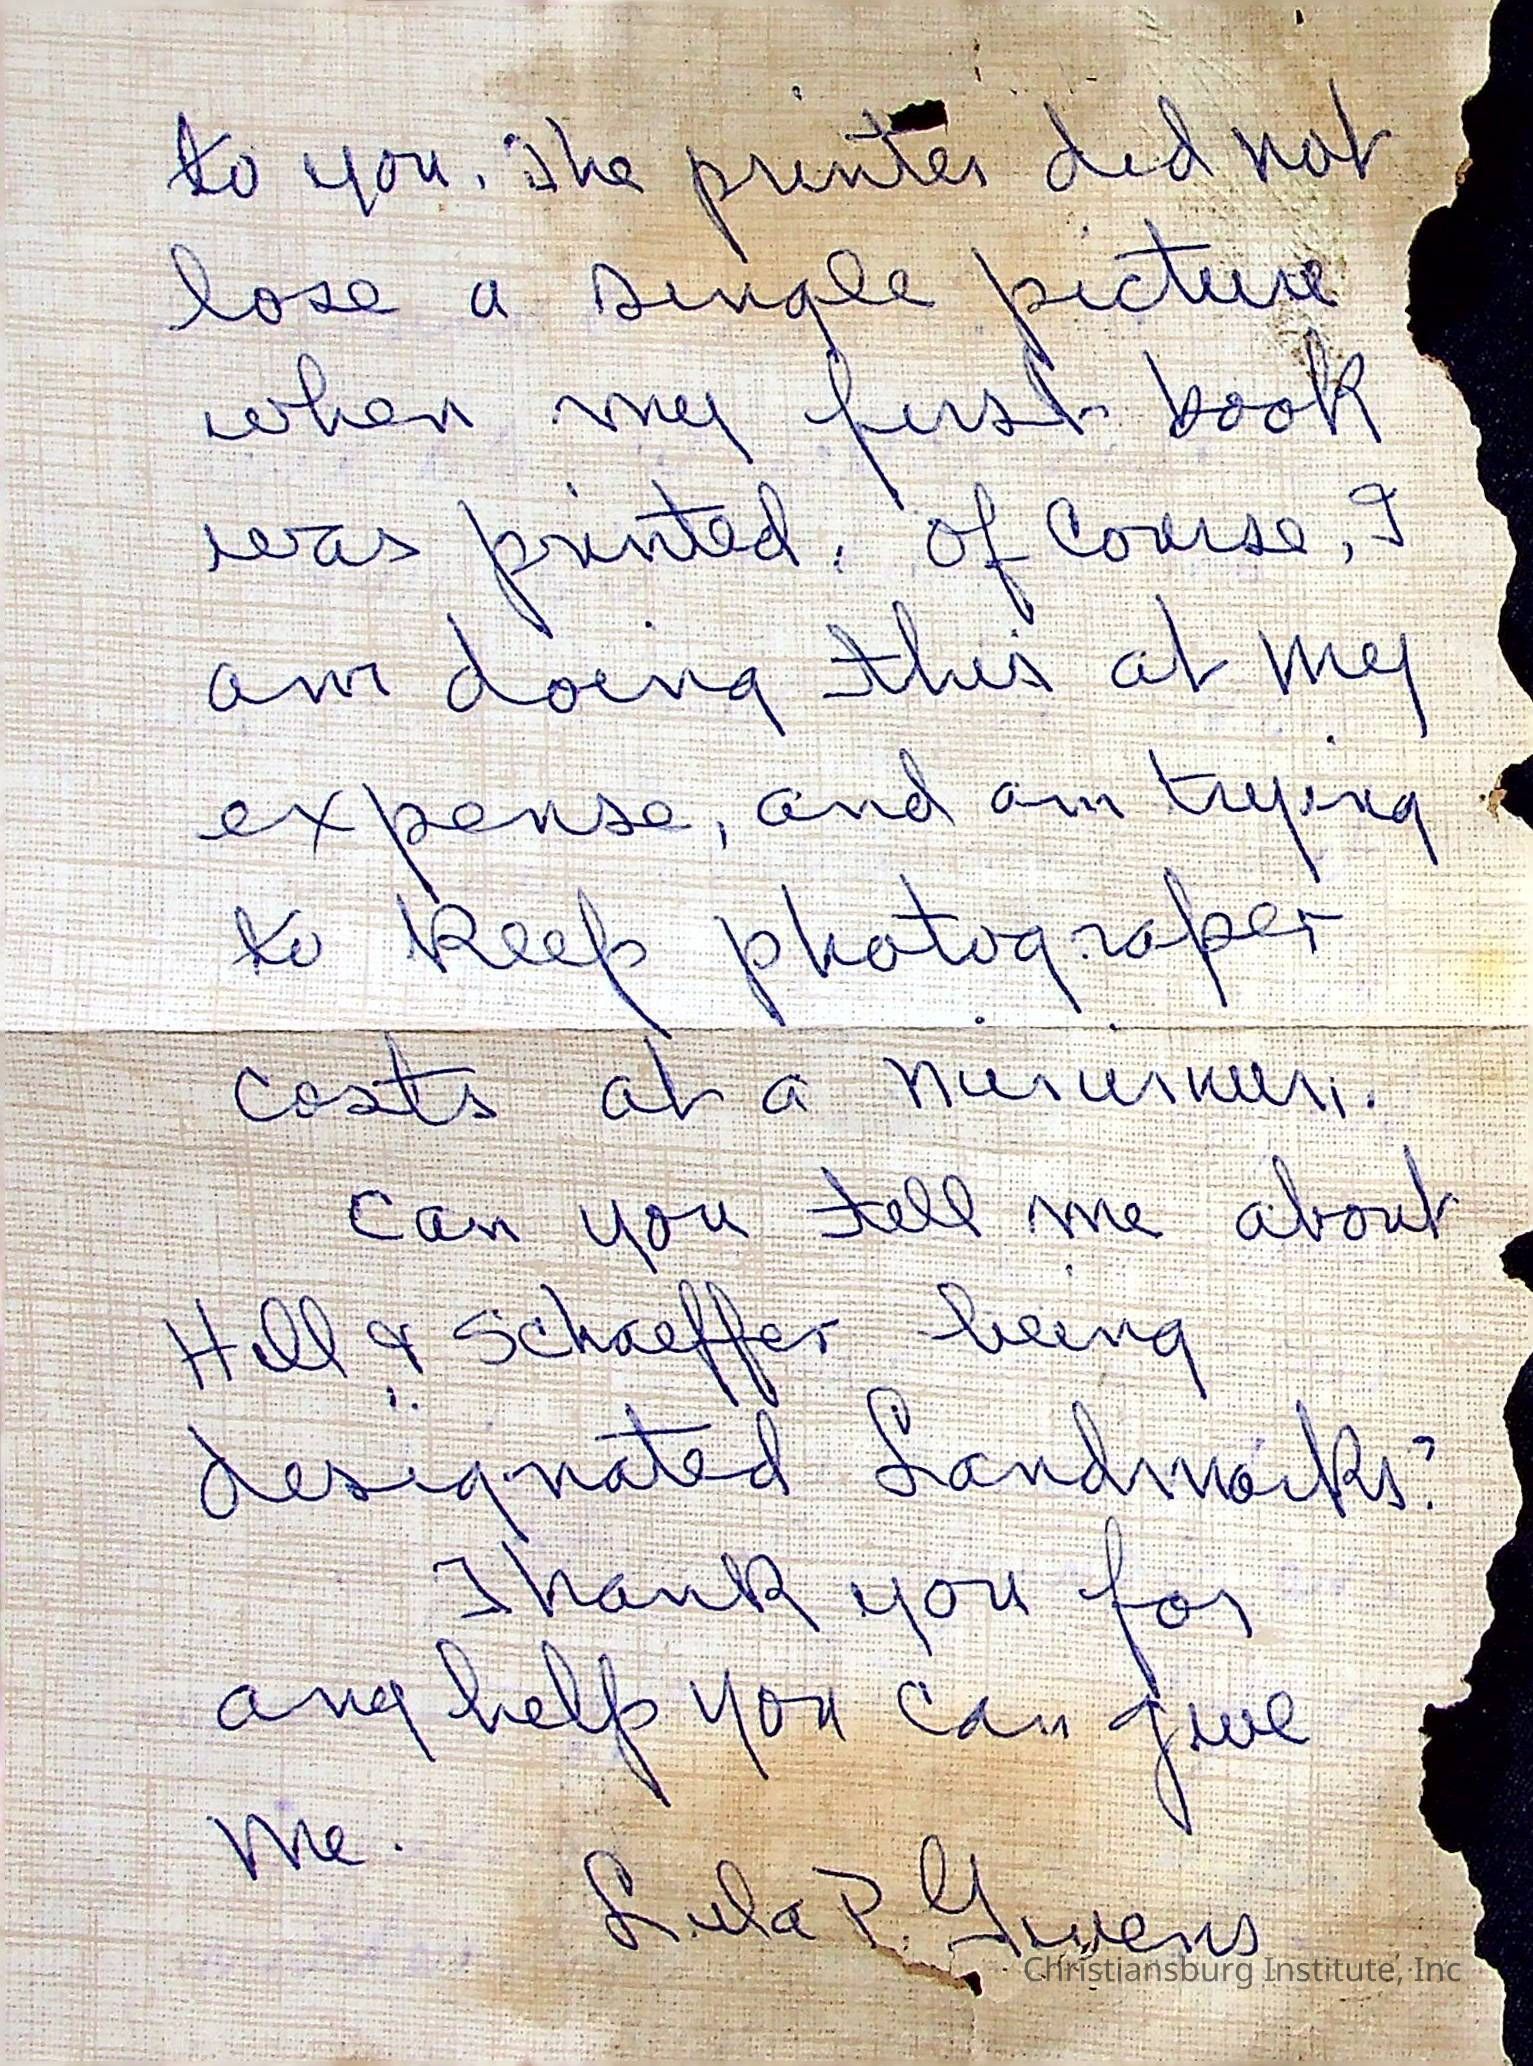 to you. The printer did not
lose a single picture
when my first book
was printed. Of course, I
am doing this at my
expense, and am trying
to keep photograper
costs at a minimum.
Can you tell me about
Hill & Schaeffer being
designated Landmarks?
Thank you for
any help you can give
me.
Lula P. Givens
Christiansburg Institute, Inc